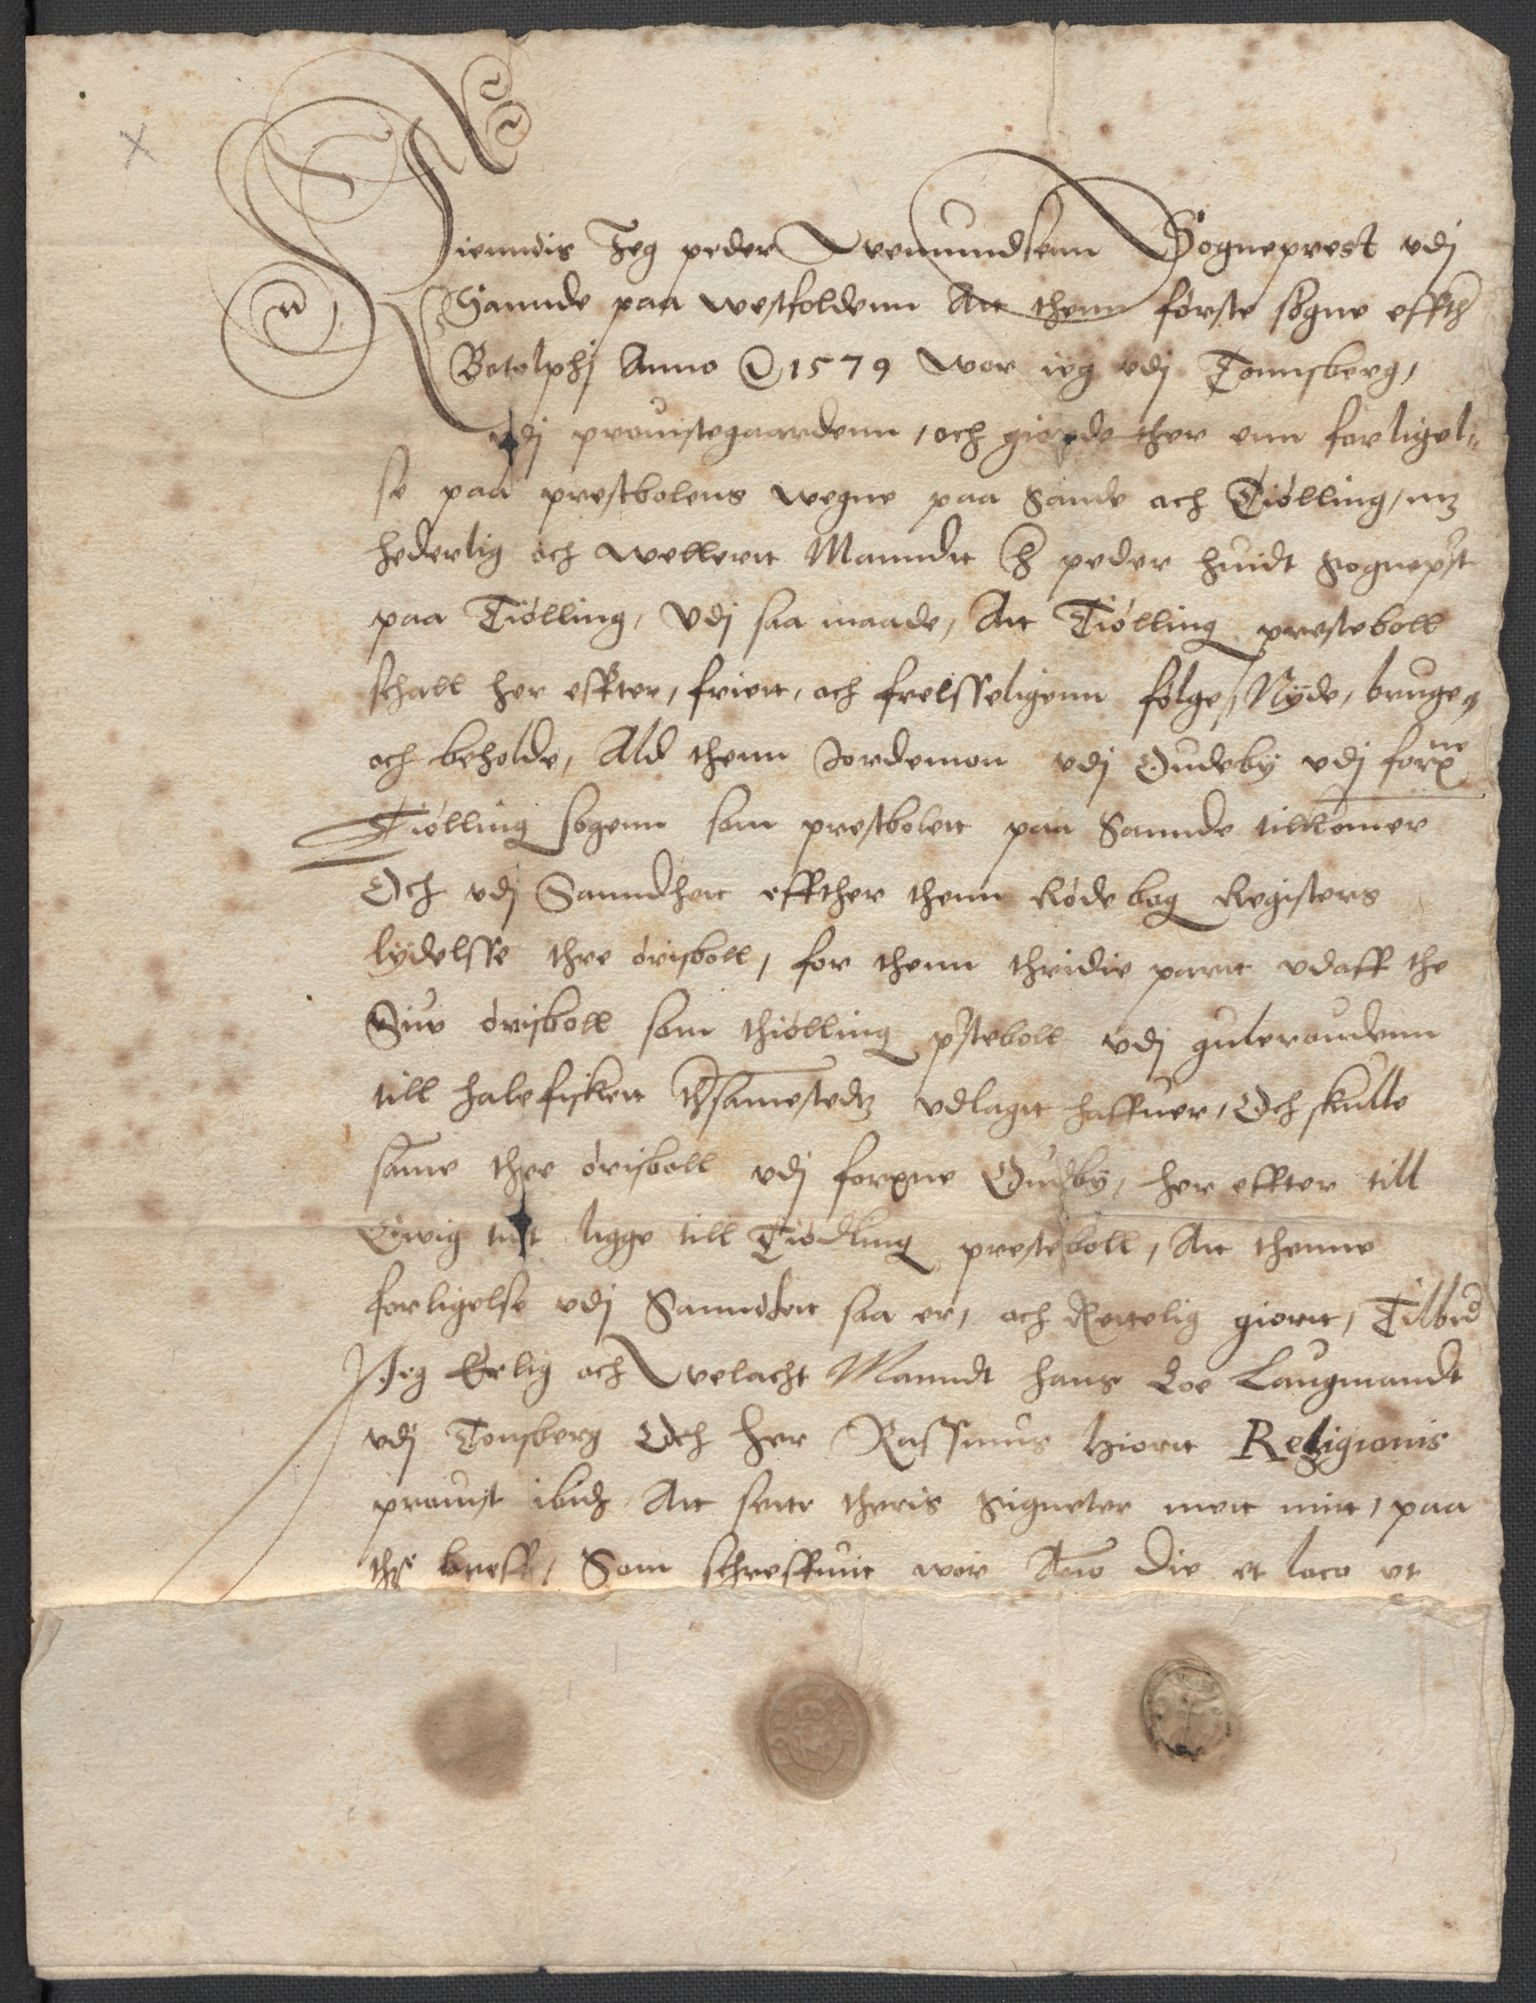 Kienndis Jeg peder Wemundsenn Sogneprest vdj
Sannde paa westfoldenn Att thenn første søgne effth
Botolphj Anno D 1579 wor ieg vdj Tonnsberg,
vdj prouistegaardenn, och giorde ther enn forligel„
se paa prestbolens wegne paa Sande och Tiølling, mz
hederlig och wellertt Manndtt H peder huidt Sognepst
paa Tiølling, Vdj saa maade, Att Tiølling presteboll
schall her effter, friett, och frelsseligenn følge, Nyde, bruge,
och beholde, Ald thenn Jordemon vdj Oudeby vdj forne
Tiølling sogenn som prestbolett paa Sannde tilkomer
Och vdj Sanndhett effther thenn Røde bog Registers
lydelsse thre ørisboll, for thenn thridie partt vdaff the
Siue ørisboll som thiølling psteboll vdj guleroudenn
till halefiskett thsamestedz vdlagtt haffuer, Och skulle
same thre ørisboll vdj forne Oudby, her effter till
Ewig tidt ligge till Tiødling presteboll, Att thenne
forligelse vdj Sanndhett saa er, och Rettelig giortt, Tilbed
Jeg Erlig och Welacht Manndt hans Loe Laugmandt
vdj Tonsberg Och her Rassmus Hiortt Religionis
prouist ibidz Att sette theris Signeter mett mitt, paa
the breff, Som schreffuit wor Ano Die et loco vt